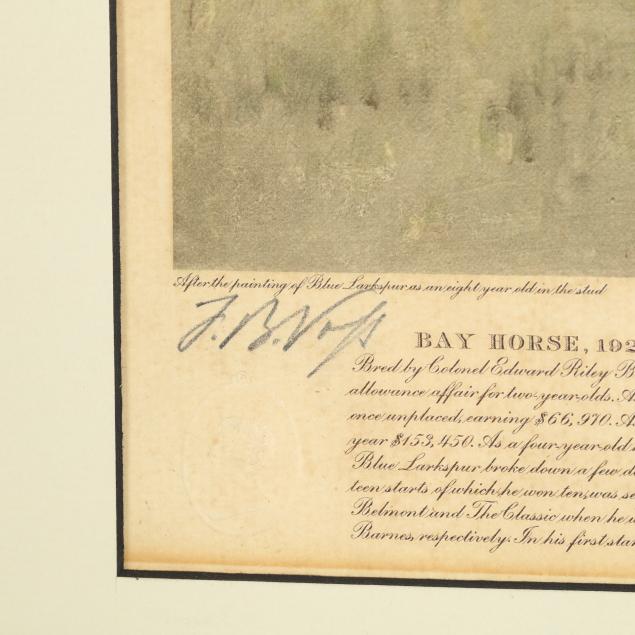 After the painting of Blue Larkspur as an eight year old in the stud
F. B. Voss
BAY HORSE, 192
Bred by Colonel Edward Riley B
allowance affair for two-year-olds. A
once unplaced, earning $66,970. A
year $153,450. As a four-year-old
Blue Larkspur broke down a few d
teen starts of which he won ten, was se
Belmont and The Classic when he w
Barnes, respectively. In his first star